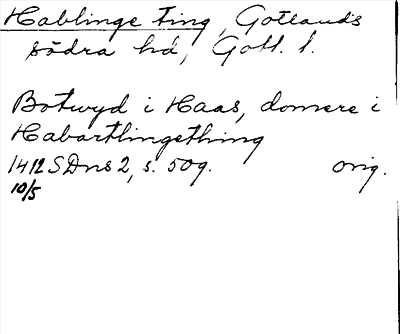 Hablinge ting, Gotlands
södra hd, Gotl. l.
Botwyd i Haas, domere i
Habartlingething
1412 SDns 2, s. 509. orig.
10/5